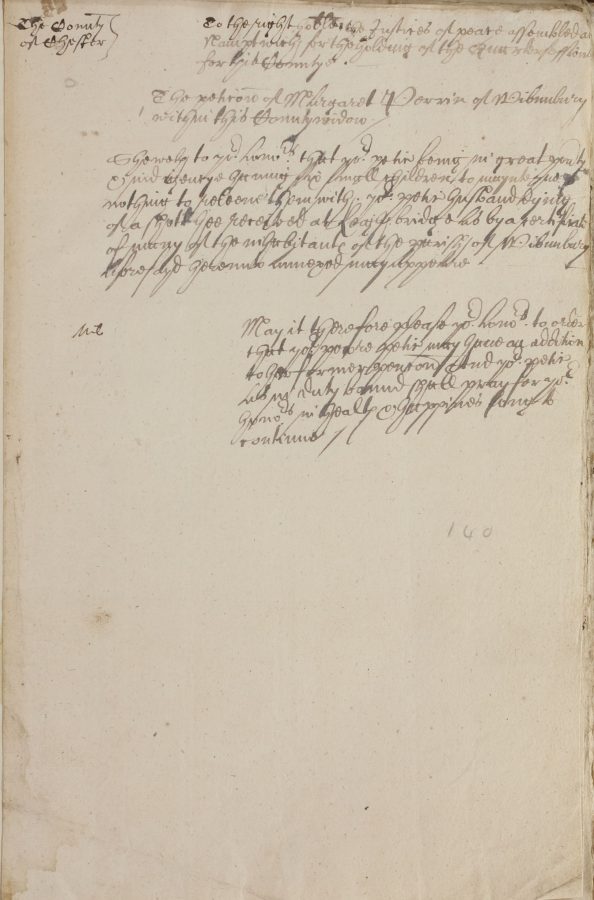 The County
of Chester
To the right the Justices of peace assembled at
Namptwich for the holding of the Quarter Sessions
for this Countye.
The peticon of Margaret Perrin of Wibunbury
within this County widow /
Sheweth to yor. honors. that yor. petir being in great
& haveing six small children to
nothing to releeve them with. yor. petirs husband dying
of a shott hee received at bridge as by a certificate
of many of the inhabitants of the parish of Wibunbury
aforesayd hereunto annexed may appeare
May it therefore please yor. honors. to order
that yor. poore petir may have an addition
to her former pencon And yor. petir
as in duty bound shall pray for yor.
honors in health & happines long to
continue /
140